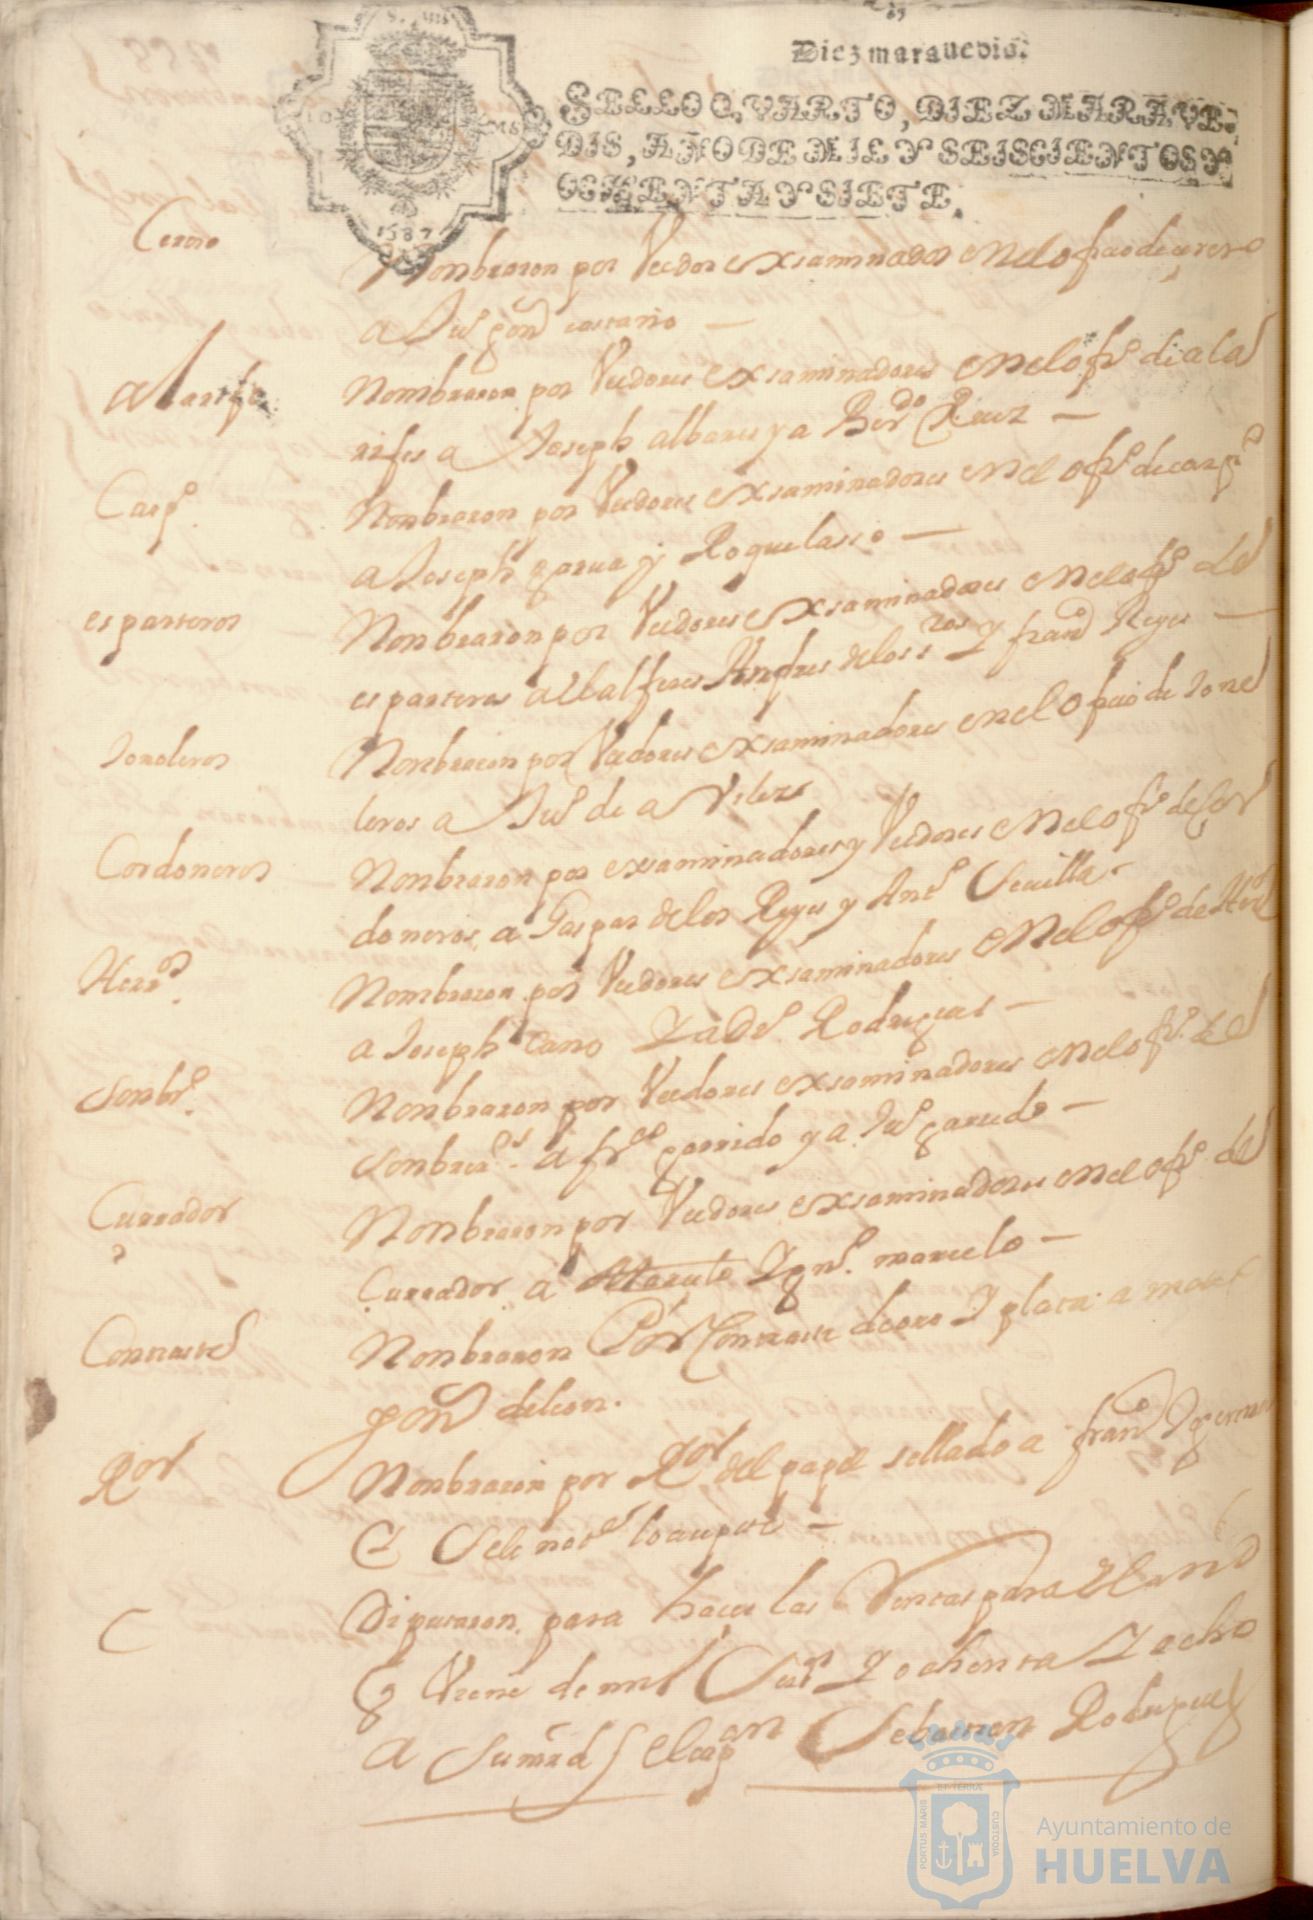 Diez maravedis.
SELLO QVARTO, DIEZ MARAVE-
DIS, AÑO DE MIL Y SEISCIENTOS Y
OCHENTA Y SIETE.
1687
Cerero
Nombraron por Veedor exsaminador en el ofizio de zerero
a Juº gonz castaño —
Alarife
Nombraron por Veedores exsaminadores en el ofiº de ala
rifes a Joseph albares y a Berdo Ruiz —
Carpº
Nonbraron por Veedores exsaminadores en el ofiº de carpº
a Joseph garua y Roque lasso —
esparteros
Nonbraron por Veedores exsaminadores en el ofiº de
esparteros a el alferes Andres de los y franº Reyes —
Toneleros
Nonbraron por Veedores exsaminadores en el ofizio de Tonel
leros a Juº de a
Cordoneros
Nonbraron por exsaminadores y Veedores en el ofiº de Cor
doneros a Gaspar de los Reyes y Antº Sevilla
Herrº
Nombraron por Veedores exsaminadores en el ofiº de Herº
a Joseph Cano Y a Dº Rodrigues —
Sonbrº
Nonbraron por Veedores exsaminadores en el ofiº de
Sonbreros a frco garrido y a Juº garrido —
Zurrador
Nonbraron por Veedores exsaminadores en el ofiº de
Zurrador a Y marcelo —
Contraste
Nonbraron Por Contraste de oro Y plata a
gonz de leon.
Ror
Nonbraron por Ror del papel sellado a franº
Se le notº lo aceptó —
Diputaron para hacer las Ventas para El año
q Viene de mil Seisº Y ochenta Y ocho
a Su mrd El capan Sebastian Rodriguez
PORTUS MARIS
ET TERRÆ
CUSTODIA
Ayuntamiento de
HUELVA